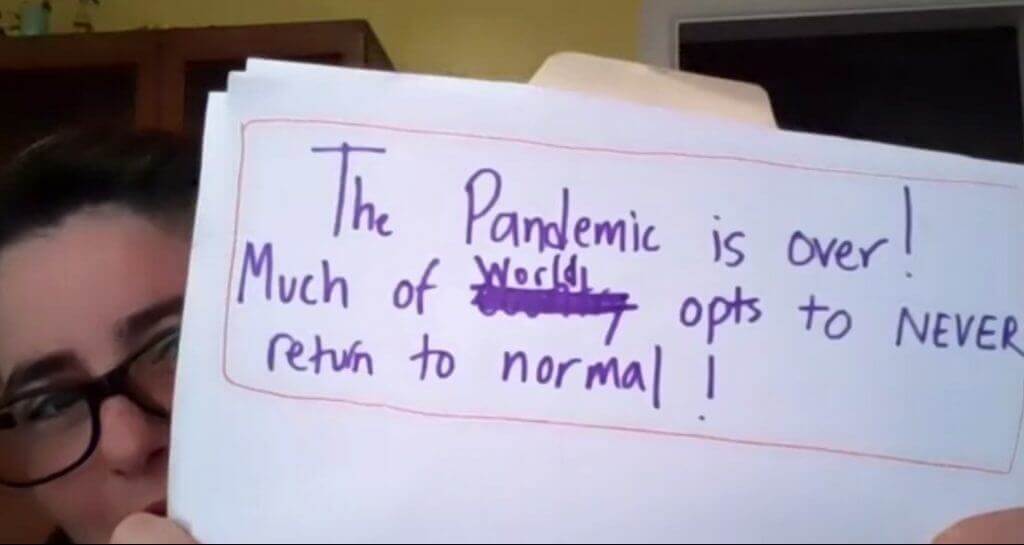 The Pandemic is over!
Much of World opts to NEVER
return to normal!